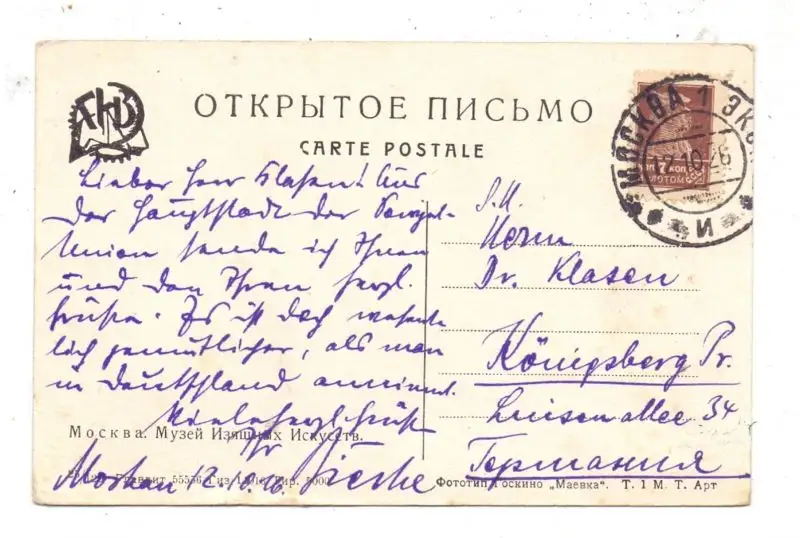 ОТКРЫТОЕ ПИСЬМО
CARTE POSTALE
МОСКВА 1 ЭКС
12.10.26
И
7 КОП
ЗОЛОТОМ
Lieber Herr Klasen! Aus
der Hauptstadt der Sowjet-
union sende ich Ihnen
und den Ihren herzl.
Grüße. Es ist doch wesent-
lich gemütlicher, als man
in Deutschland annimmt.
Viele herzl. Grüße
Ihr
Moskau 12.10.26.
S.H.
Herrn
Dr. Klasen
Königsberg Pr.
Luisenallee 34
Германия
Москва. Музей Изящных Искусств.
Главлит 55556 Гиз Тир. 5000
Фототип. Госкино „Маевка". Т. 1 М. Т. Арт